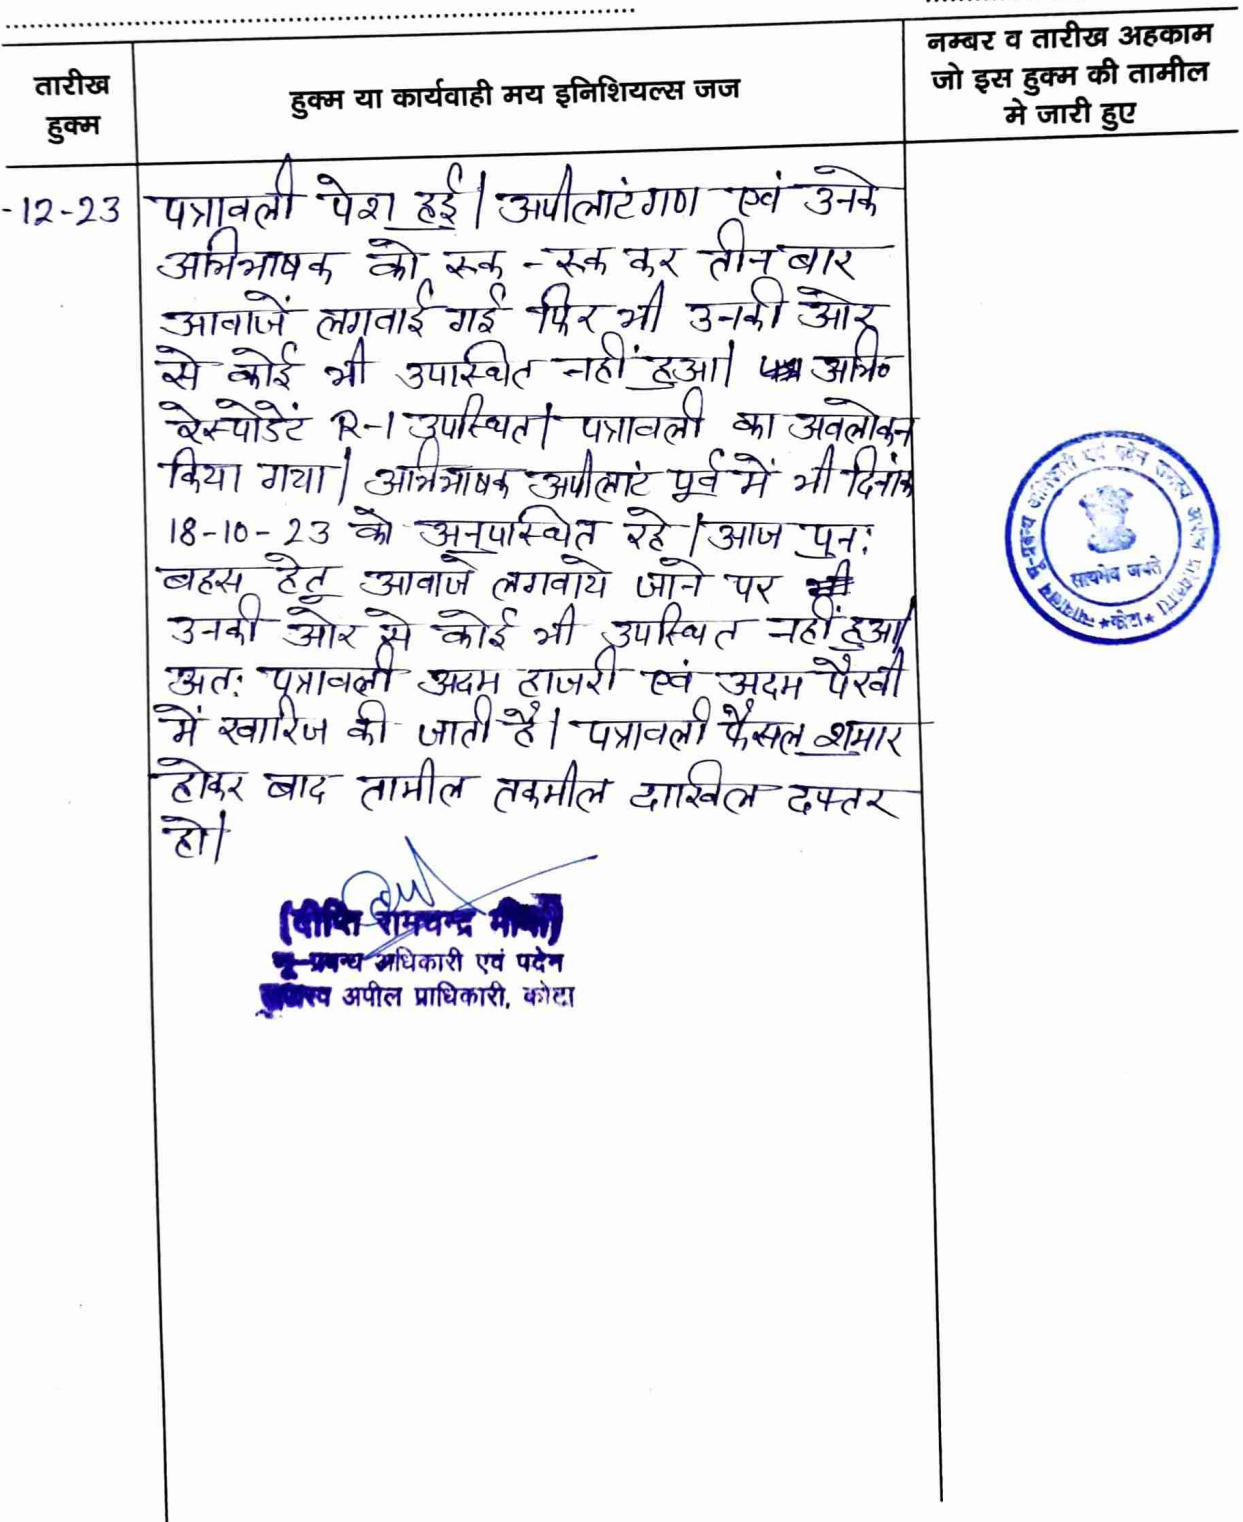 तारीख
हुक्म
हुक्म या कार्यवाही मय इनिशियल्स जज
नम्बर व तारीख अहकाम
जो इस हुक्म की तामील
मे जारी हुए
-12-23
पत्रावली पेश हुई। अपीलांटगण एवं उनके
अभिभाषक को रूक-रूक कर तीन बार
आवाजें लगवाई गई फिर भी उनकी ओर
से कोई भी उपस्थित नहीं हुआ। अभि०
रेस्पोडेंट R-1 उपस्थित। पत्रावली का अवलोकन
किया गया। अभिभाषक अपीलांट पूर्व में भी दिनांक
18-10-23 को अनुपस्थित रहे। आज पुनः
बहस हेतु आवाजे लगवाये जाने पर भी
उनकी ओर से कोई भी उपस्थित नहीं हुआ।
अतः पत्रावली अदम हाजरी एवं अदम पैरवी
में खारिज की जाती है। पत्रावली फैसल शुमार
होकर बाद तामील तकमील दाखिल दफ्तर
हो।
(दीप्ति रामचन्द्र मीणा)
भू-प्रबन्ध अधिकारी एवं पदेन
राजस्व अपील प्राधिकारी, कोटा
भू-प्रबन्ध अधिकारी एवं पदेन राजस्व अपील
सत्यमेव जयते
★कोटा★